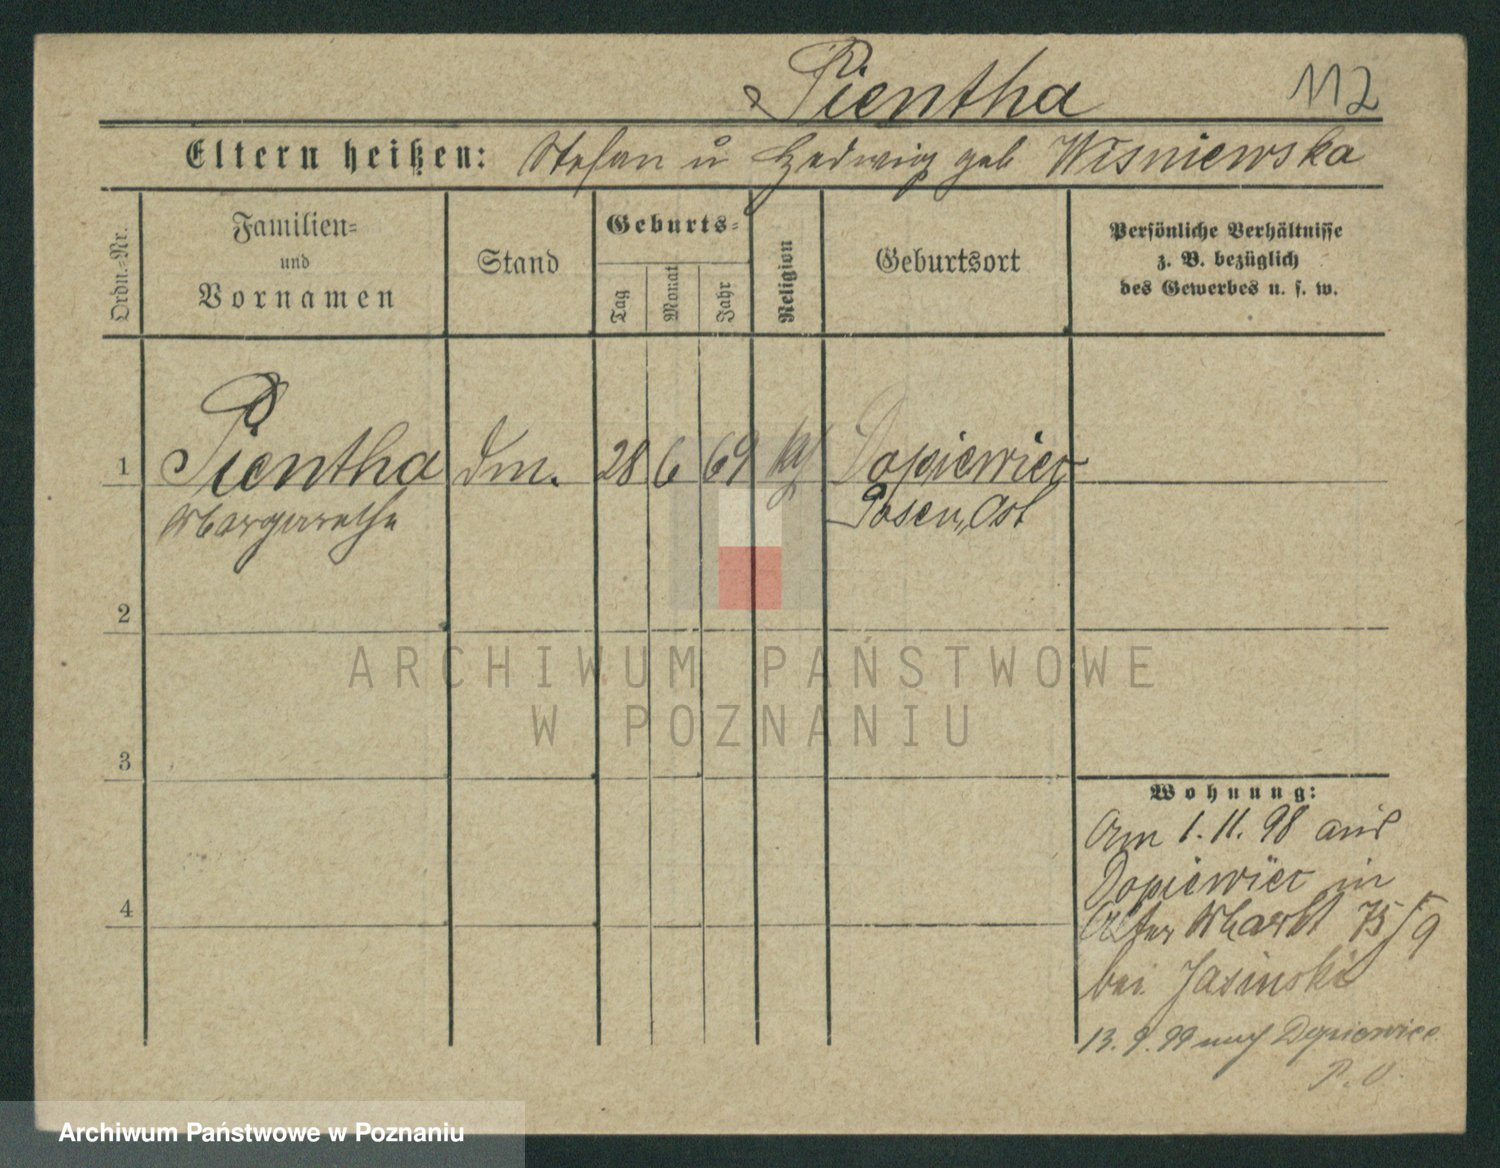 Pientha 112
Eltern heißen: Stefan u Hedwig geb Wisniewska
Ordn.-Nr.
Familien-
und
Vornamen
Stand
Geburts-
Tag
Monat
Jahr
Religion
Geburtsort
Persönliche Verhältnisse
z. B. bezüglich
des Gewerbes u. s. w.
1 Pientha 28 6 69 Dopiewiec
Margarethe Posen, Ost
2
ARCHIWUM PAŃSTWOWE
W POZNANIU
3
Wohnung:
Am 1.11.98 aus
Dopiewiec in
4
Alter Markt 75/9
bei Jasinski
13.9.99 nach Dopiewiec
P. O.
Archiwum Państwowe w Poznaniu